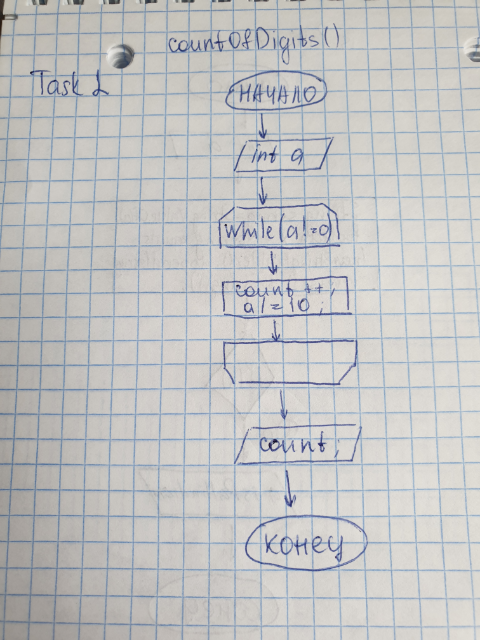 countOfDigits()
Task 1
НАЧАЛО
int a
while(a!=0)
count ++;
a/=10;
count;
КОНЕЦ